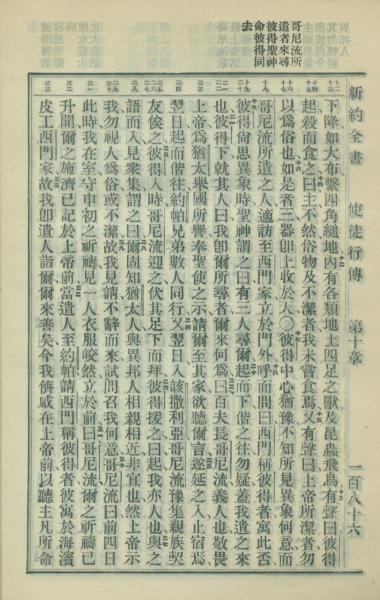 新約全書　使徒行傳　第十章　一百八十六
哥尼流所
遣者來尋
彼得聖神
命彼得同
去
下降如大布繫四角縋地內有各類地上四足之獸及昆蟲飛鳥有聲曰彼得
起殺而食之曰主不然俗物及不潔者我未嘗食焉又有聲曰上帝所潔者勿
以爲俗也如是者三器卽上收於天〇彼得中心猶豫不知所見異象何意而
哥尼流所遣之人適訪至西門家立於門外呼而問曰西門稱彼得者寓此否
彼得尚思異象時聖神謂之曰有三人尋爾起而下偕之往勿疑蓋我遣之來
也彼得下就其人曰我卽爾所尋者爾來何爲曰百夫長哥尼流義人也敬畏
上帝爲猶太舉國所譽奉聖使之示請爾至其家欲聽爾言遂延之入止宿焉
翌日起而偕往約帕兄弟數人同行又翌日入該撒利亞哥尼流豫集親族契
友俟之彼得入時哥尼流迎之伏其足下而拜彼得援之曰起我亦人也與之
語而入見衆集謂之曰爾固知猶太人與異邦人相親相近非宜也然上帝示
我勿視人爲俗或不潔故我見請不辭而來試問召我何意哥尼流曰前四日
此時我在室守申初之祈禱見一人衣服皎然立於前曰哥尼流爾之祈禱已
升聞爾之施濟已記於上帝前當遣人至約帕請西門稱彼得者彼寓於海濱
皮工西門家故我卽遣人詣爾爾來善矣今我儕咸在上帝前以聽主凡所命